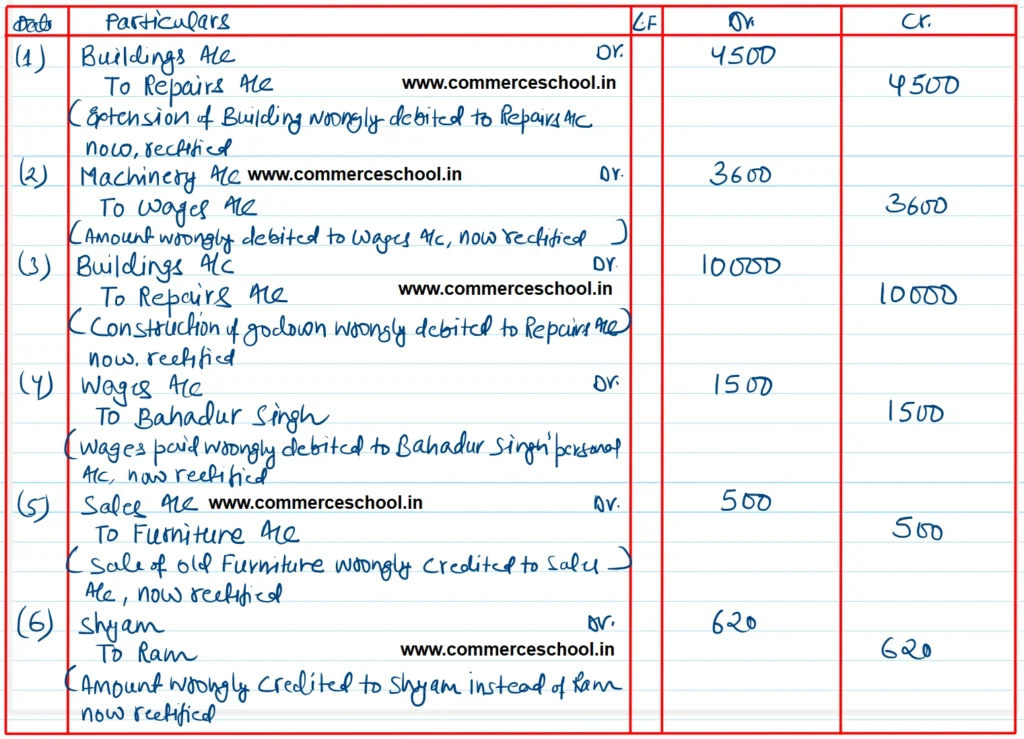 Date Particulars L.F Dr. Cr.
(1) Buildings A/c Dr. 4500
To Repairs A/c www.commerceschool.in 4500
(Extension of Building wrongly debited to Repairs A/c
now, rectified
(2) Machinery A/c www.commerceschool.in Dr. 3600
To Wages A/c 3600
(Amount wrongly debited to Wages A/c, now rectified)
(3) Buildings A/c Dr. 10000
To Repairs A/c www.commerceschool.in 10000
(Construction of godown wrongly debited to Repairs A/c)
now, rectified
(4) Wages A/c Dr. 1500
To Bahadur Singh 1500
(Wages paid wrongly debited to Bahadur Singh' personal
A/c, now rectified
(5) Sales A/c www.commerceschool.in Dr. 500
To Furniture A/c 500
(Sale of old Furniture wrongly credited to Sales)
A/c, now rectified
(6) Shyam Dr. 620
To Ram www.commerceschool.in 620
(Amount wrongly credited to Shyam instead of Ram
now rectified